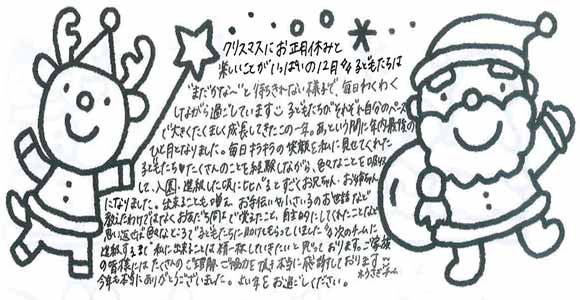 クリスマスにお正月休みと
楽しいことがいっぱいの12月♪子どもたちは
"まだかな～"と待ちきれない様子で、毎日わくわく
しながら過ごしています☺子どもたちがそれぞれ自分のペース
で大きくたくましく成長してきたこの一年。あっという間に年内最後の
ひと月となりました。毎日キラキラの笑顔を私に見せてくれた
子どもたち♥たくさんのことを経験しながら、色々なことを吸収
して、入園、進級した頃に比べるとすっかりお兄ちゃん・お姉ちゃん
になりました。出来ることも増え、お手伝いや小さい子のお世話など
教えたわけではなくお友だち同士で覚えたこと、自主的にしてくれたことなど
思い返せば色々なところで子どもたちに助けてもらっていました♪次のチームに
進級するまで私に出来ることは精一杯していきたいと思っております。ご家族
の皆様にはたくさんのご理解・ご協力を頂き本当に感謝しております☺
今年も本当にありがとうございました。よい年をお過ごしください。
うさぎチーム